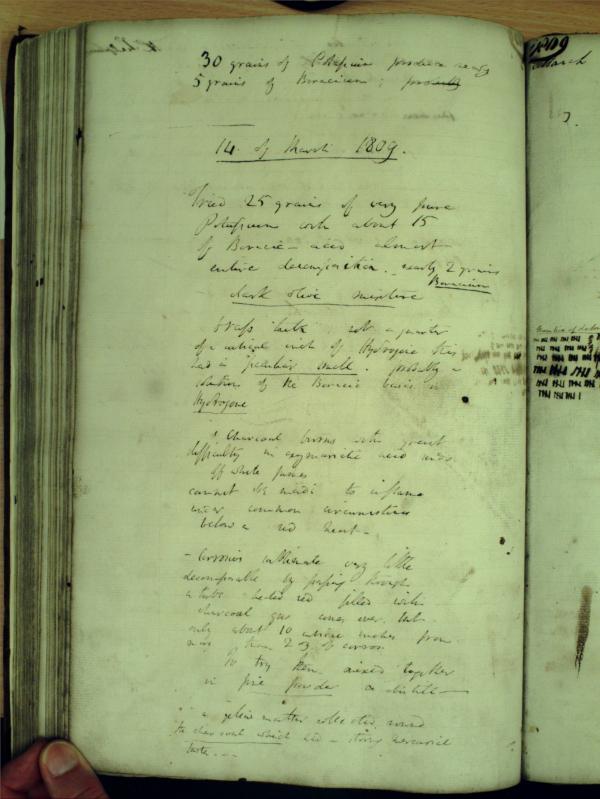 30 grains of Potassium produce nearly
5 grains of Boracium;
14. of March. 1809.
Tried 25 grains of very pure
Potassium with about 15
of Boracic acid almost
entire decomposition. nearly 2 grains
Boracium
dark olive mixture
not a quarter
of a cubical inch of Hydrogene this
had a peculiar smell. probably a
solution of the Boracic basis in
Hydrogene
Charcoal burns with great
difficulty in oxymuriatic acid
off white fumes
cannot be made to inflame
under common circumstances
below a red heat
Corrosive sublimate very little
decomposable by passing through
a tube heated red filled with
charcoal gas comes over but
only about 10 cubical inches from
more than 2 of corros
To try them mixed together
in fine powder
a yellow matter collected round
the charcoal which had a strong mercurial
taste
1809
March